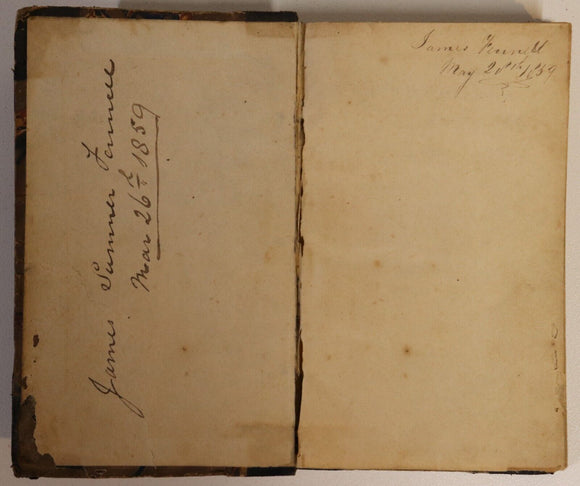 James Sumner Fennell
Mar 26th 1859
James Fennell
May 20th 1859